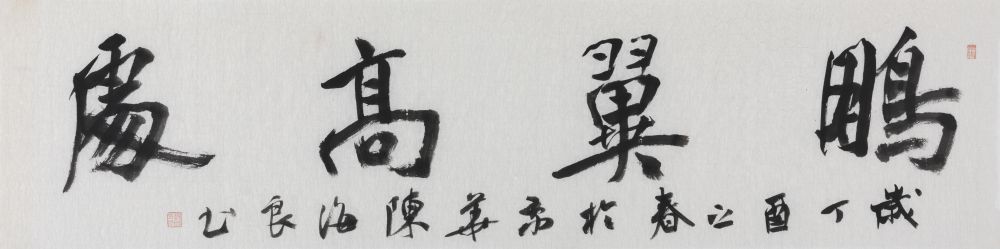 鵬翼高處
歲丁酉之春於京華陳海良书